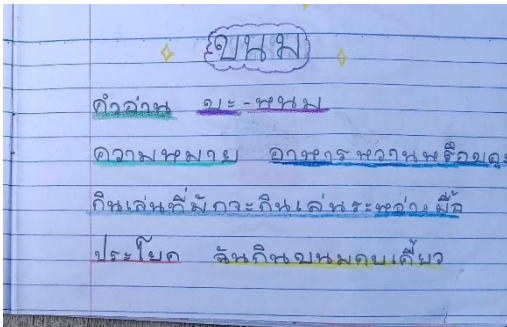 ขนม
คำอ่าน ขะ-หนม
ความหมาย อาหารหวานหรือของ
กินเล่นที่มักจะกินเล่นระหว่างมื้อ
ประโยค ฉันกินขนมคบเคี้ยว